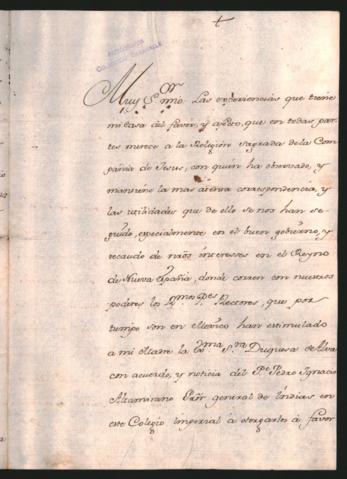 Muy S.or mio. Las experiencias que tiene
mi Casa del favor, y afecto, que en todas par-
tes merece a la Religion sagrada de la Com-
pañia de Jesus, con quien ha observado, y
mantenido la mas atenta correspondencia, y
las utilidades que de ello se nos han se-
guido, especialmente en el buen gobierno, y
recaudo de nros intereses en el Reyno
de Nueva España, donde corren con nuestros
poderes los R.mos P.es Rectores, que por
tiempo son en Mexico han estimulado
a mi Madre la Ex.ma S.ra Duquesa de Alva
con acuerdo, y noticia del P.e Pedro Ignacio
Altamirano Pror general de Indias en
este Colegio Imperial à otorgarles à favor